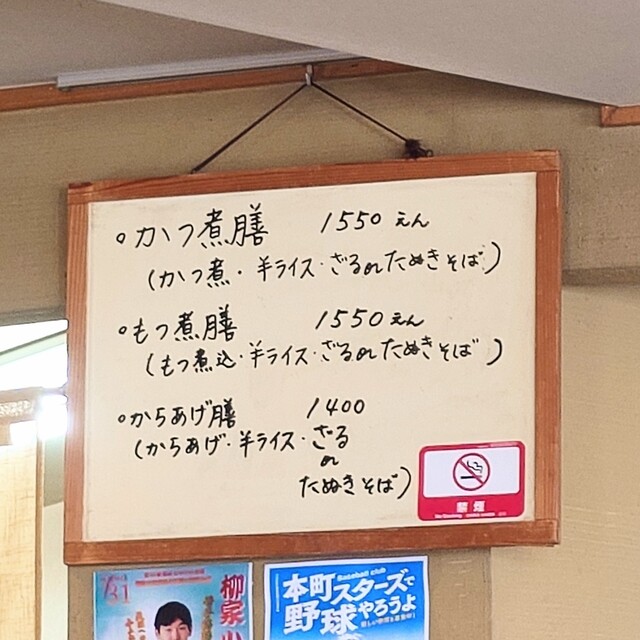 。かつ煮膳 1550えん
(かつ煮・半ライス・ざるorたぬきそば)
。もつ煮膳 1550えん
(もつ煮込・半ライス・ざるorたぬきそば)
。からあげ膳 1400
(からあげ・半ライス・ざる
or
たぬきそば)
禁煙
No Smoking
7/31
柳家小
Baseball club
本町スターズで
野球やろうよ